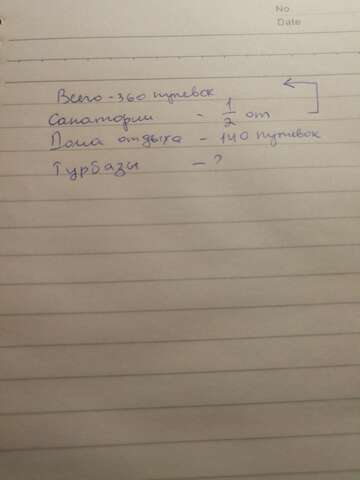 No
Date
Всего - 360 путевок
Санатории - 1/2 от
Дома отдыха - 140 путевок
Турбазы - ?